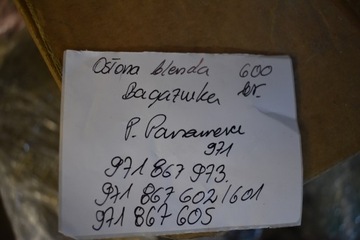 Osłona blenda 600
Bagażnika br.
P. Panamera
971
971 867 973.
971 867 602/601
971 867 605